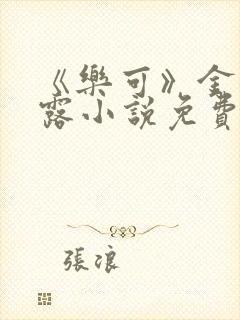 《樂可》金
露小說免費
張浪